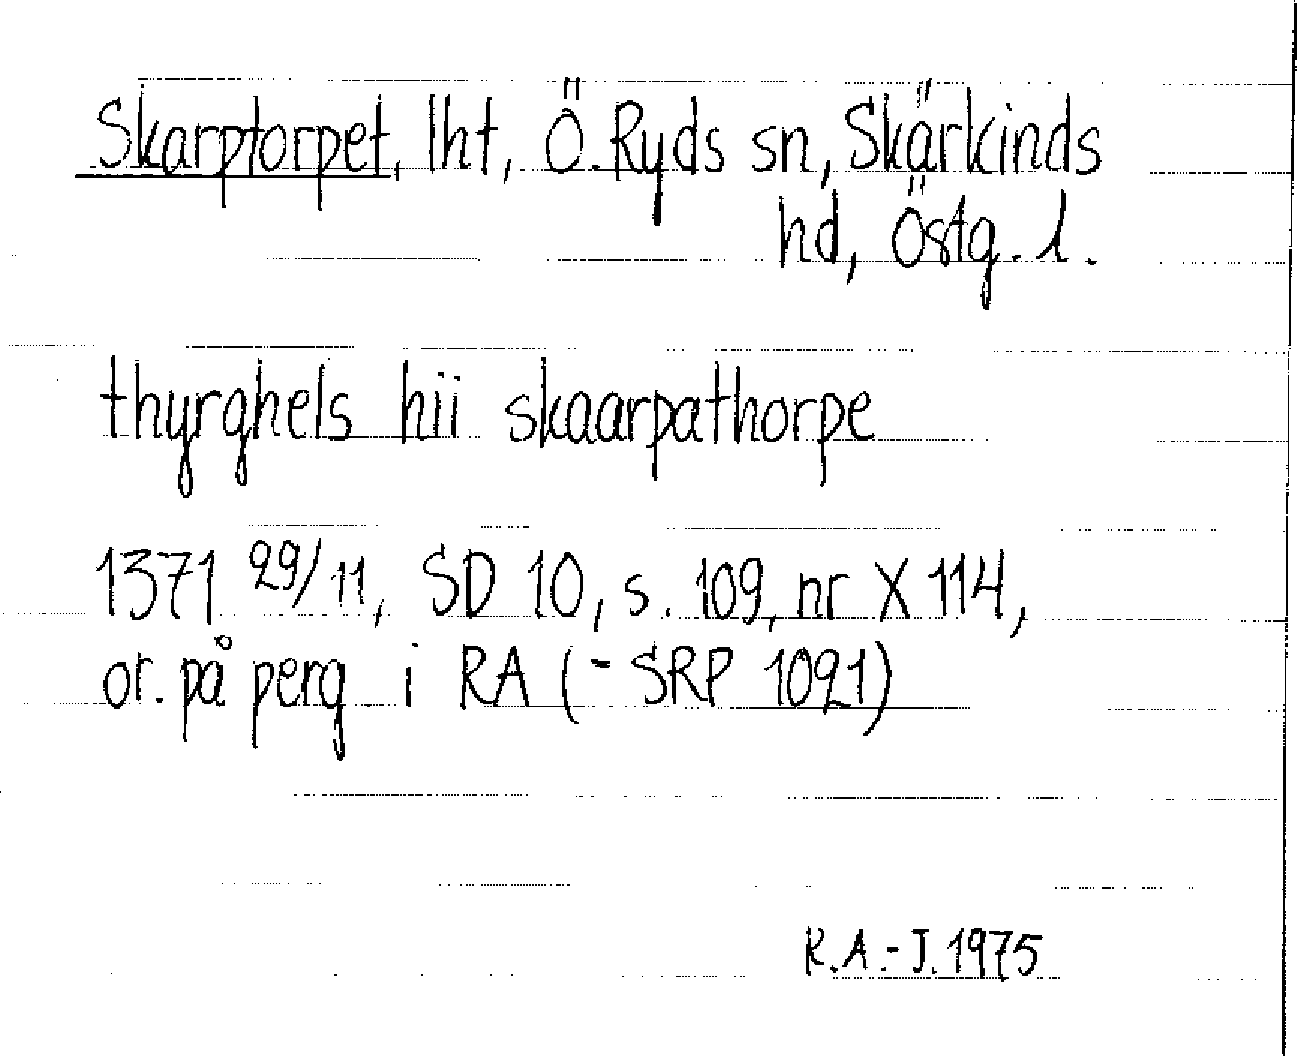 Skarptorpet, lht, Ö. Ryds sn, Skärkinds
hd, Östg. l.
thyrghels hii skaarpathorpe
1371 29/11, SD 10, s. 109, nr X 114,
or. på perg i RA (- SRP 1021)
K.A.-J. 1975